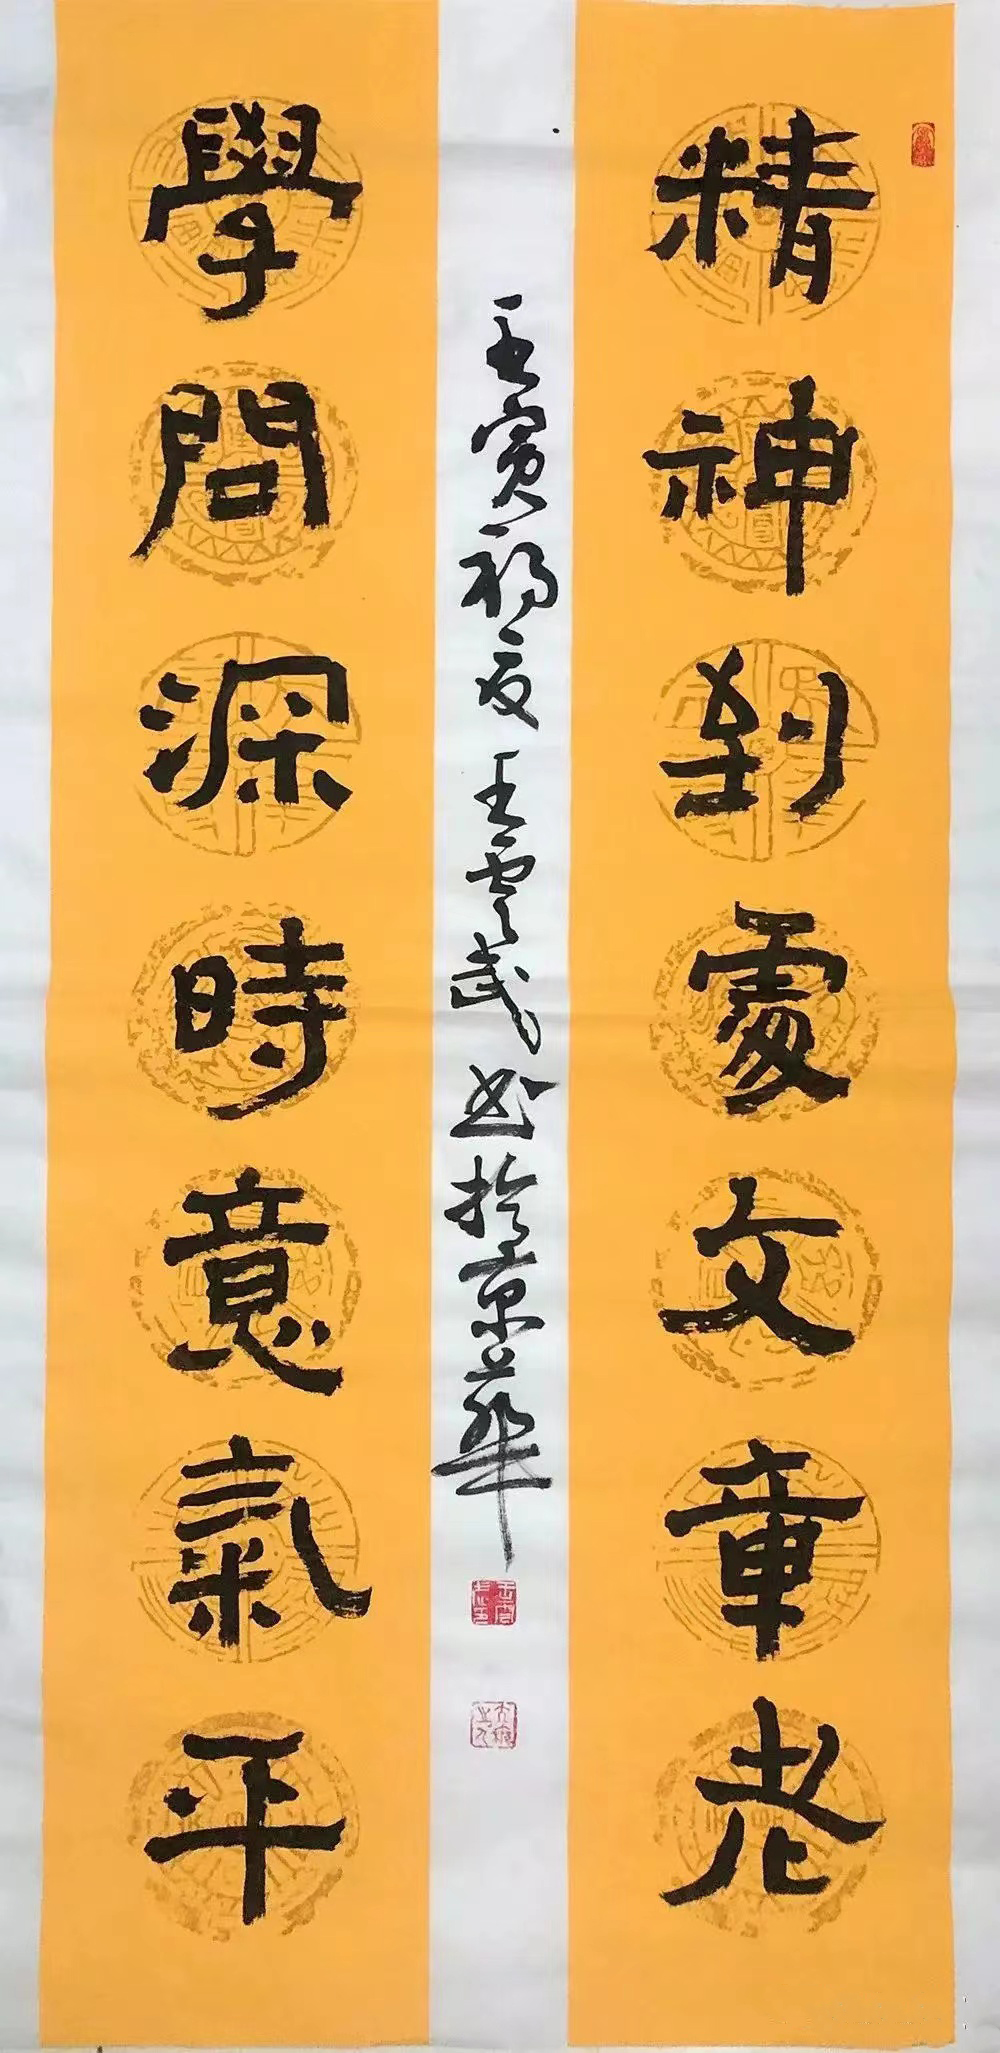 精神到處文章老
學問深時意氣平
壬寅初夏王雲武书於京華